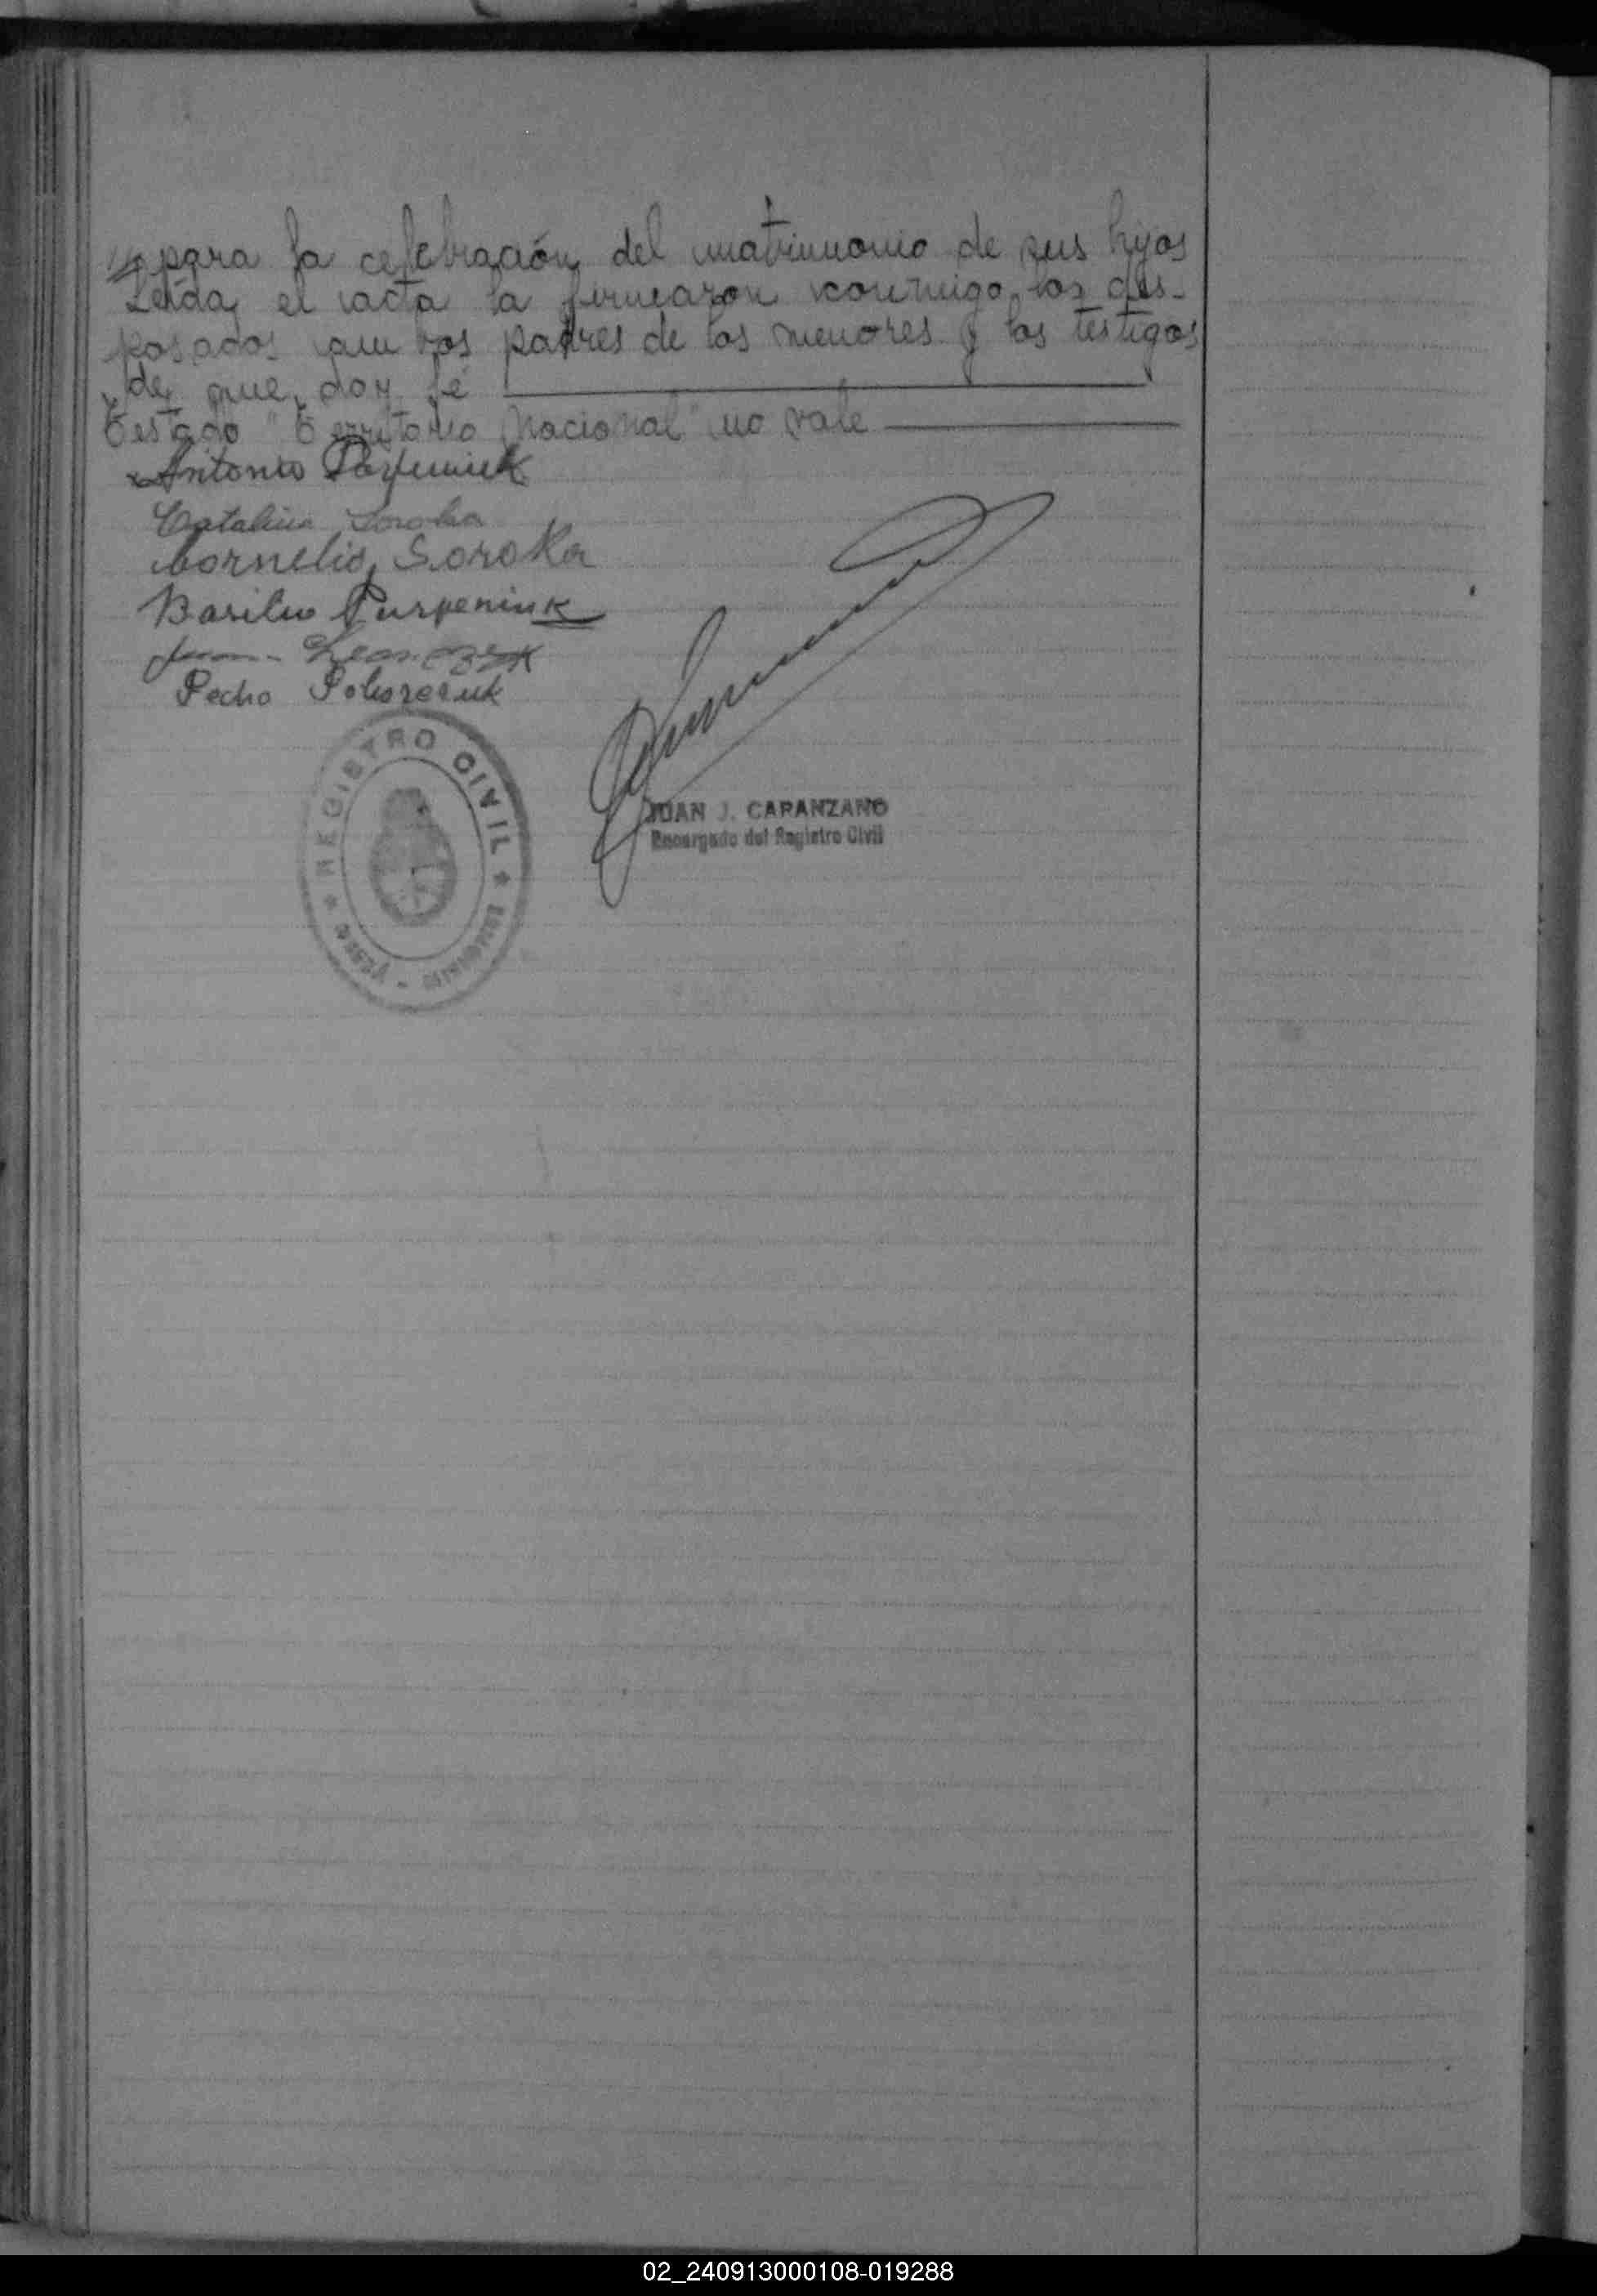 para la celebración del matrimonio de sus hijos
Leída el acta la firmaron conmigo, los des-
posados ambos padres de los menores y los testigos
de que doy fé
Testado "Territorio Nacional" no vale
Antonio
Catalina Soroka
Cornelio Soroka
Basilio
Juan
Pedro
REGISTRO CIVIL
MISIONES
JUAN J. CARANZANO
Encargado del Registro Civil
02_240913000108-019288